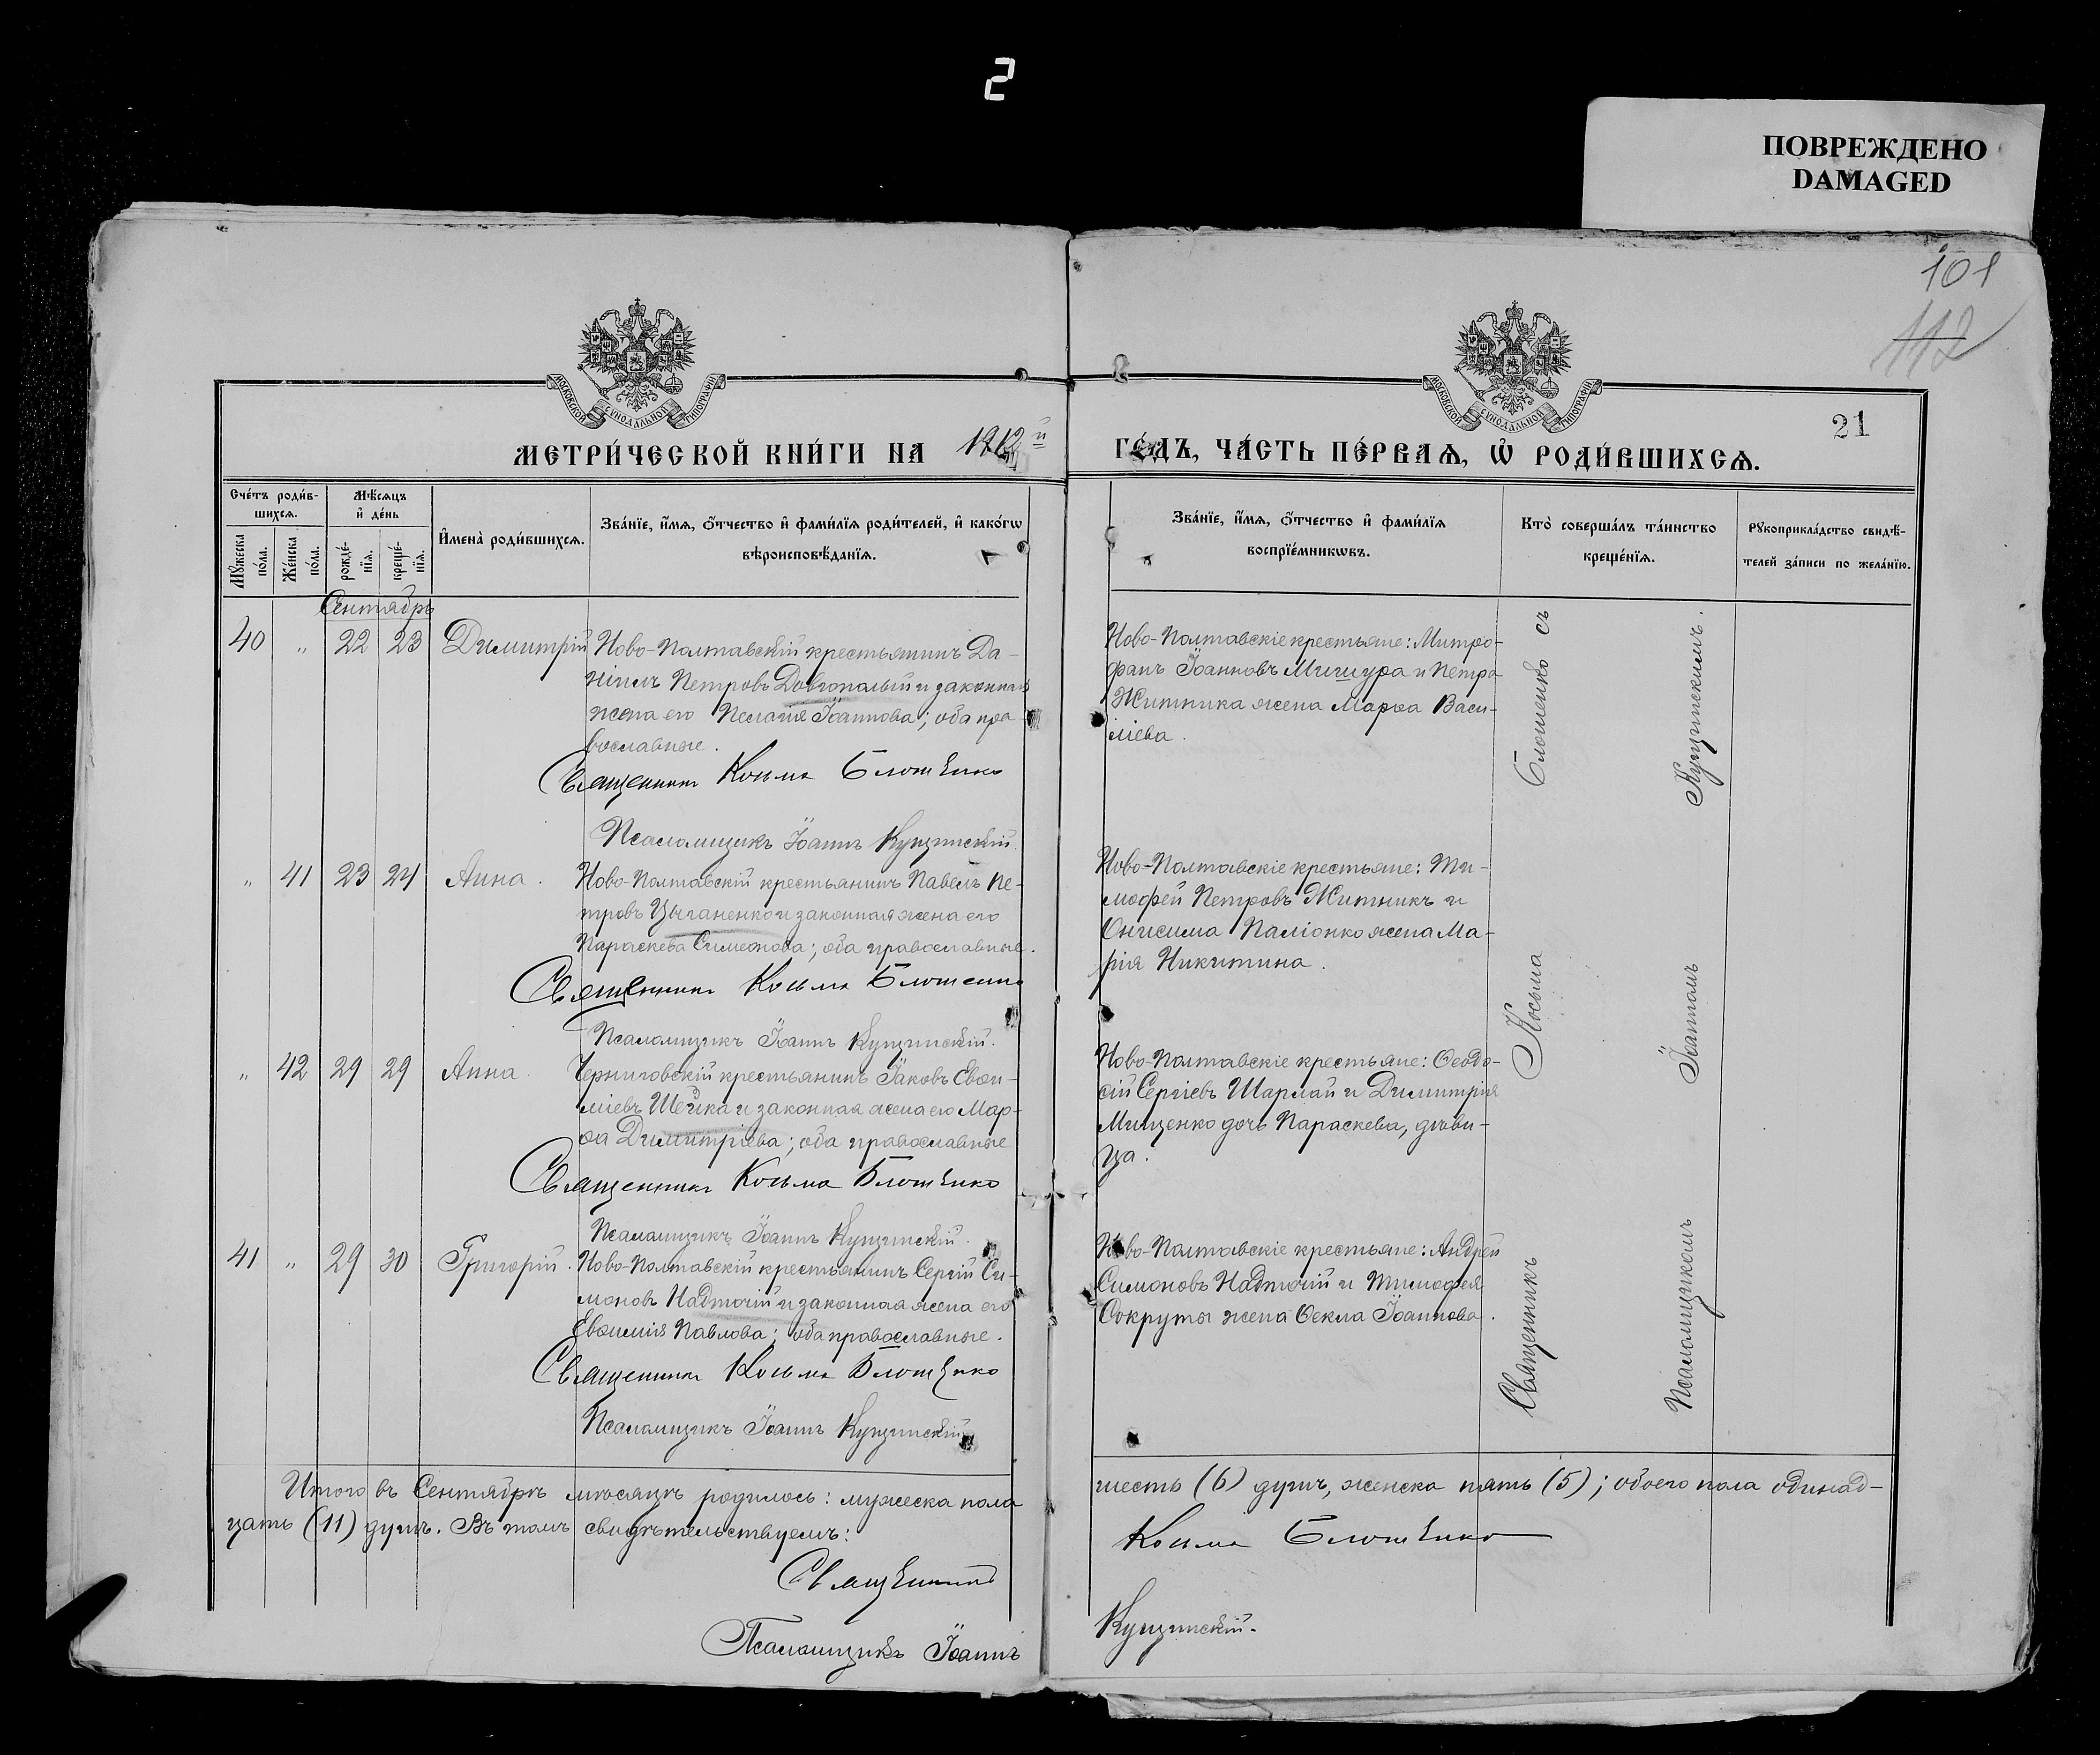 2
ПОВРЕЖДЕНО
DAMAGED
101
112
21
МОСКОВСКОЙ СѴНОДАЛЬНОЙ ТИПОГРАФІИ
МОСКОВСКОЙ СѴНОДАЛЬНОЙ ТИПОГРАФІИ
МЕТРИ́ЧЕСКОЙ КНИ́ГИ НА 1912й
ГО́ДЪ, ЧА́СТЬ ПЕ́РВАѦ, Ѡ РОДИ́ВШИХСѦ.
Сче́тъ роди́в-
шихсѧ.
Мꙋжеска по́ла.
Же́нска по́ла.
Мѣ́сѧцъ
и҆ де́нь
рожде́-
нїѧ.
креще́-
нїѧ.
И҆мена̀ роди́вшихсѧ.
Зва́нїе, и҆́мѧ, ѻ҆́тчество и҆ фами́лїѧ роди́телей, и҆ како́гѡ
вѣроисповѣ́данїѧ.
Зва́нїе, и҆́мѧ, ѻ҆́тчество и҆ фами́лїѧ
воспрїе́мникѡвъ.
Кто̀ соверша́лъ та́инство
креще́нїѧ.
Рꙋкоприкла́дство свидѣ́-
телей за́писи по жела́нїю.
Сентябрь
40 „ 22 23 Димитрій
Ново-Полтавскій крестьянинъ Да-
ніилъ Петровъ Довгопалый и законная
жена его Пелагія Іоаннова; оба пра-
вославные.
Священник Косьма Блошенко
Псаломщикъ Іоаннъ Кущинскій.
Ново-Полтавскіе крестьяне: Митро-
фанъ Іоанновъ Мишура и Петра
Житника жена Марѳа Васи-
ліева.
„ 41 23 24 Анна.
Ново-Полтавскій крестьянинъ Павелъ Пе-
тровъ Цыганенко и законная жена его
Параскева Симеонова; оба православные.
Священник Косьма Блошенко
Псаломщикъ Іоаннъ Кущинскій.
Ново-Полтавскіе крестьяне: Ти-
моѳей Петровъ Житникъ и
Онисима Паліонко жена Ма-
рія Никитина.
„ 42 29 29 Анна
Черниговскій крестьянинъ Іаковъ Евѳи-
міевъ Шейка и законная жена его Мар-
ѳа Димитріева; оба православные
Священник Косьма Блошенко
Псаломщикъ Іоаннъ Кущинскій.
Ново-Полтавскіе крестьяне: Ѳеодо-
сій Сергіевъ Шарлай и Димитрія
Мищенко дочь Параскева, дѣви-
ца.
41 „ 29 30 Григорій.
Ново-Полтавскій крестьянинъ Сергій Си-
моновъ Надточій и законная жена его
Евѳимія Павлова; оба православные.
Священник Косьма Блошенко
Псаломщикъ Іоаннъ Кущинскій
Ново-Полтавскіе крестьяне: Андрей
Симоновъ Надточій и Тимоѳея
Сокруты жена Ѳекла Іоаннова.
Священникъ Косьма Блошенко съ
Псаломщикомъ Іоанномъ Кущинскимъ.
Итого въ Сентябрѣ мѣсяцѣ родилось: мужеска пола
шесть (6) душъ, женска пять (5); обоего пола одинад-
цать (11) душъ. Въ томъ свидѣтельствуемъ:
Священникъ Косьма Блошенко
Псаломщикъ Іоаннъ Кущинскій.